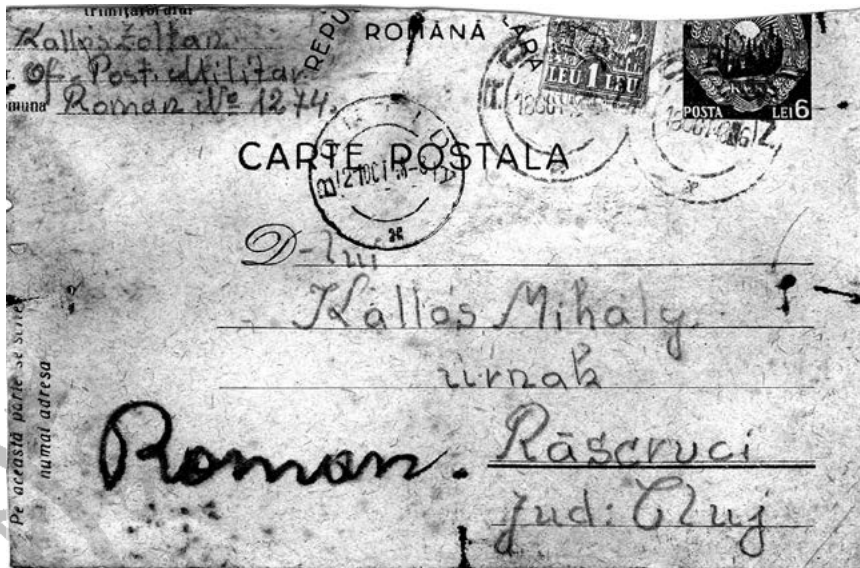 trimițătorului
Kallós Zoltán
Of. Post. Militar
muna Roman No 1274.
ROMÂNĂ
LEU 1 LEU
RPR
POSTA LEI 6
CARTE POSTALA
D-lui
Kállós Mihály
úrnak
Roman.
Răscruci
jud: Cluj
Pe această parte se scrie
numai adresa